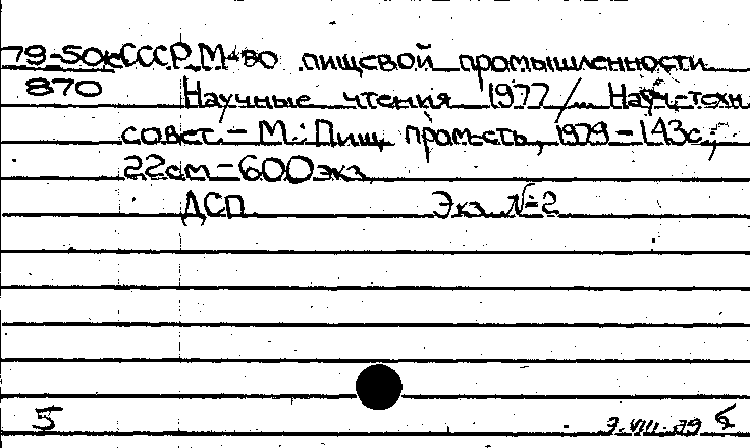 79-50к СССР. М-во пищевой промышленности
870 Научные чтения 1977 /... Науч.-техн
совет. – М.: Пищ. пром-сть, 1979 – 143с.;
22см – 600экз.
ДСП Экз. №2
5 9.VIII.79 Б